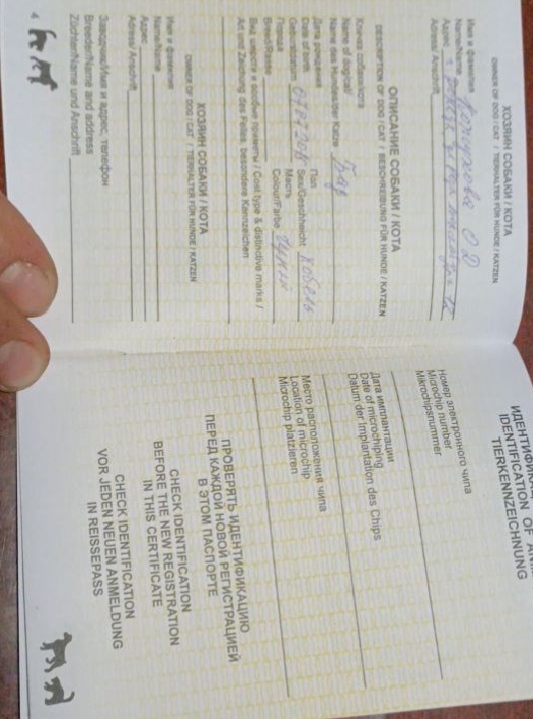 ХОЗЯИН СОБАКИ / КОТА
OWNER OF DOG / CAT / TIERHALTER FÜR HUNDE / KATZEN
Имя и фамилия
Name/Name
Адрес
Adress/ Anschrift
ОПИСАНИЕ СОБАКИ / КОТА
DESCRIPTION OF DOG / CAT / BESCHREIBUNG FÜR HUNDE / KATZEN
Кличка собаки/кота
Name of dog/cat/
Name des Hundes/der Katze
Дата рождения Пол
Date of birth Sex/Geschlecht кобель
Geburtsdatum Масть
Порода Colour/Farbe
Breed/Rasse
Вид шерсти и особые приметы / Coat type & distinctive marks /
Art und Zeichung des Felles, besondere Kennzeichen
ХОЗЯИН СОБАКИ / КОТА
OWNER OF DOG / CAT / TIERHALTER FÜR HUNDE / KATZEN
Имя и фамилия
Name/Name
Адрес
Adress/ Anschrift
Заводчик/Имя и адрес, телефон
Breeder/Name and address
Züchter/Name und Anschrift
4
IDENTIFICATION OF
TIERKENNZEICHNUNG
Номер электронного чипа
Microchip number
Mikrochipsnummer
Дата имплантации
Date of microchiping
Datum der Implantation des Chips
Место расположения чипа
Location of microchip
Microchip platzieren
ПРОВЕРЯТЬ ИДЕНТИФИКАЦИЮ
ПЕРЕД КАЖДОЙ НОВОЙ РЕГИСТРАЦИЕЙ
В ЭТОМ ПАСПОРТЕ
CHECK IDENTIFICATION
BEFORE THE NEW REGISTRATION
IN THIS CERTIFICATE
CHECK IDENTIFICATION
VOR JEDEN NEUEN ANMELDUNG
IN REISSEPASS